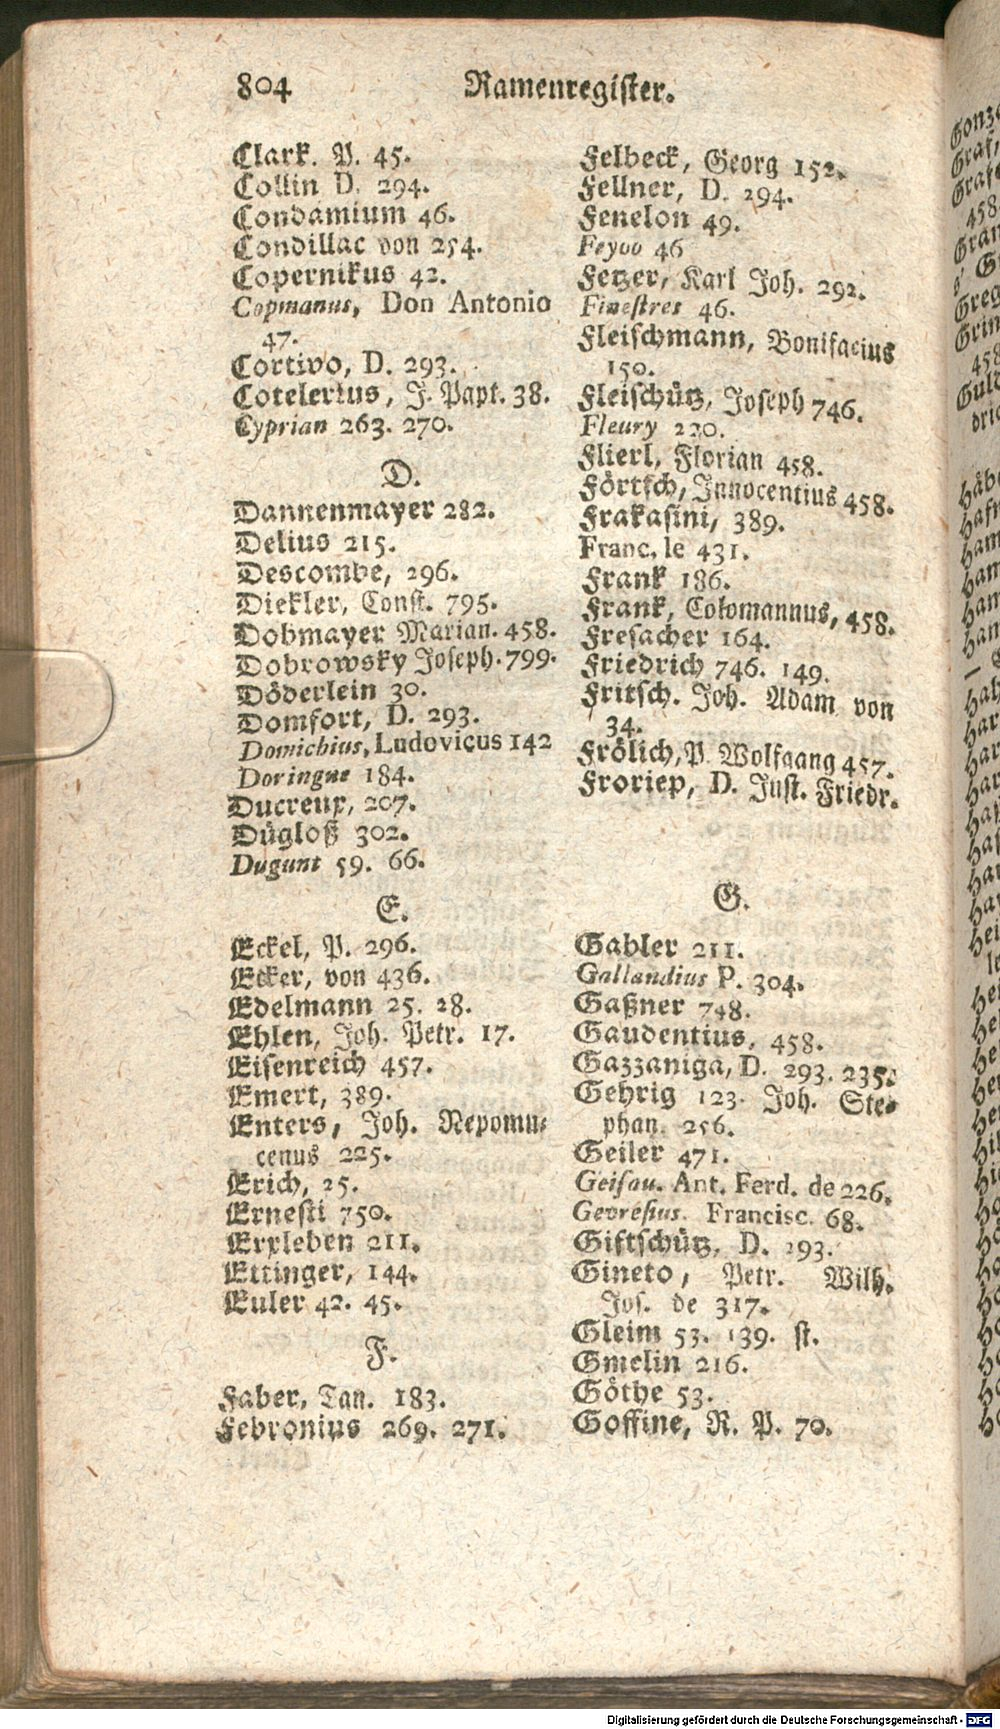 804 Namenregister.
Clark. P. 45.
Collin D. 294.
Condamium 46.
Condillac von 254.
Copernikus 42.
Copmanus, Don Antonio
47.
Cortivo, D. 293.
Cotelerius, J. Papt. 38.
Cyprian 263. 270.
D.
Dannenmayer 282.
Delius 215.
Descombe, 296.
Diekler, Const. 795.
Dobmayer Marian. 458.
Dobrowsky Joseph. 799.
Döderlein 30.
Domfort, D. 293.
Domichius, Ludovicus 142
Doringue 184.
Ducreux, 207.
Dügloß 302.
Dugunt 59. 66.
E.
Eckel, P. 296.
Ecker, von 436.
Edelmann 25. 28.
Ehlen, Joh. Petr. 17.
Eisenreich 457.
Emert, 389.
Enters, Joh. Nepomu-
cenus 225.
Erich, 25.
Ernesti 750.
Erxleben 211.
Ettinger, 144.
Euler 42. 45.
F.
Faber, Tan. 183.
Febronius 269. 271.
Felbeck, Georg 152.
Fellner, D. 294.
Fenelon 49.
Feyoo 46
Fetzer, Karl Joh. 292.
Finestres 46.
Fleischmann, Bonifacius
150.
Fleischütz, Joseph 746.
Fleury 220.
Flierl, Florian 458.
Förtsch, Innocentius 458.
Frakasini, 389.
Franc. le 431.
Frank 186.
Frank, Colomannus, 458.
Fresacher 164.
Friedrich 746. 149.
Fritsch. Joh. Adam von
34.
Frölich, P. Wolfgang 457.
Froriep, D. Just. Friedr.
G.
Gabler 211.
Gallandius P. 304.
Gaßner 748.
Gaudentius, 458.
Gazzaniga, D. 293. 235.
Gehrig 123. Joh. Ste-
phan. 256.
Geiler 471.
Geisau. Ant. Ferd. de 226.
Gevresius. Francisc. 68.
Giftschütz, D. 293.
Gineto, Petr. Wilh.
Jos. de 317.
Gleim 53. 139. st.
Gmelin 216.
Göthe 53.
Goffine, R. P. 70.
Digitalisierung gefördert durch die Deutsche Forschungsgemeinschaft - DFG